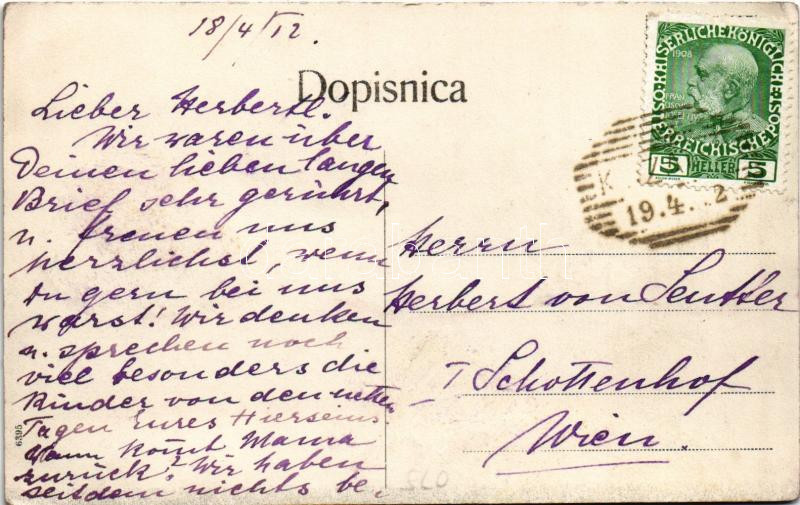 18/4 12.
Dopisnica
Lieber Herbertl.
Wir waren über
Deinen lieben langen
Brief sehr gerührt,
u. freuen uns
herzlichst, wenn
Du gern bei uns
warst! Wir denken
u. sprechen noch
viel besonders die
Kinder von den netten
Tagen Eures Hierseins.
Wann kom̄t Mama
zurück? Wir haben
seitdem nichts be.
6395
Herrn
Herbert von Seutter
I Schottenhof
Wien.
KAISERLICHE KÖNIGLICHE
ÖSTERREICHISCHE POST
1908
5 HELLER 5
K
19.4. 2